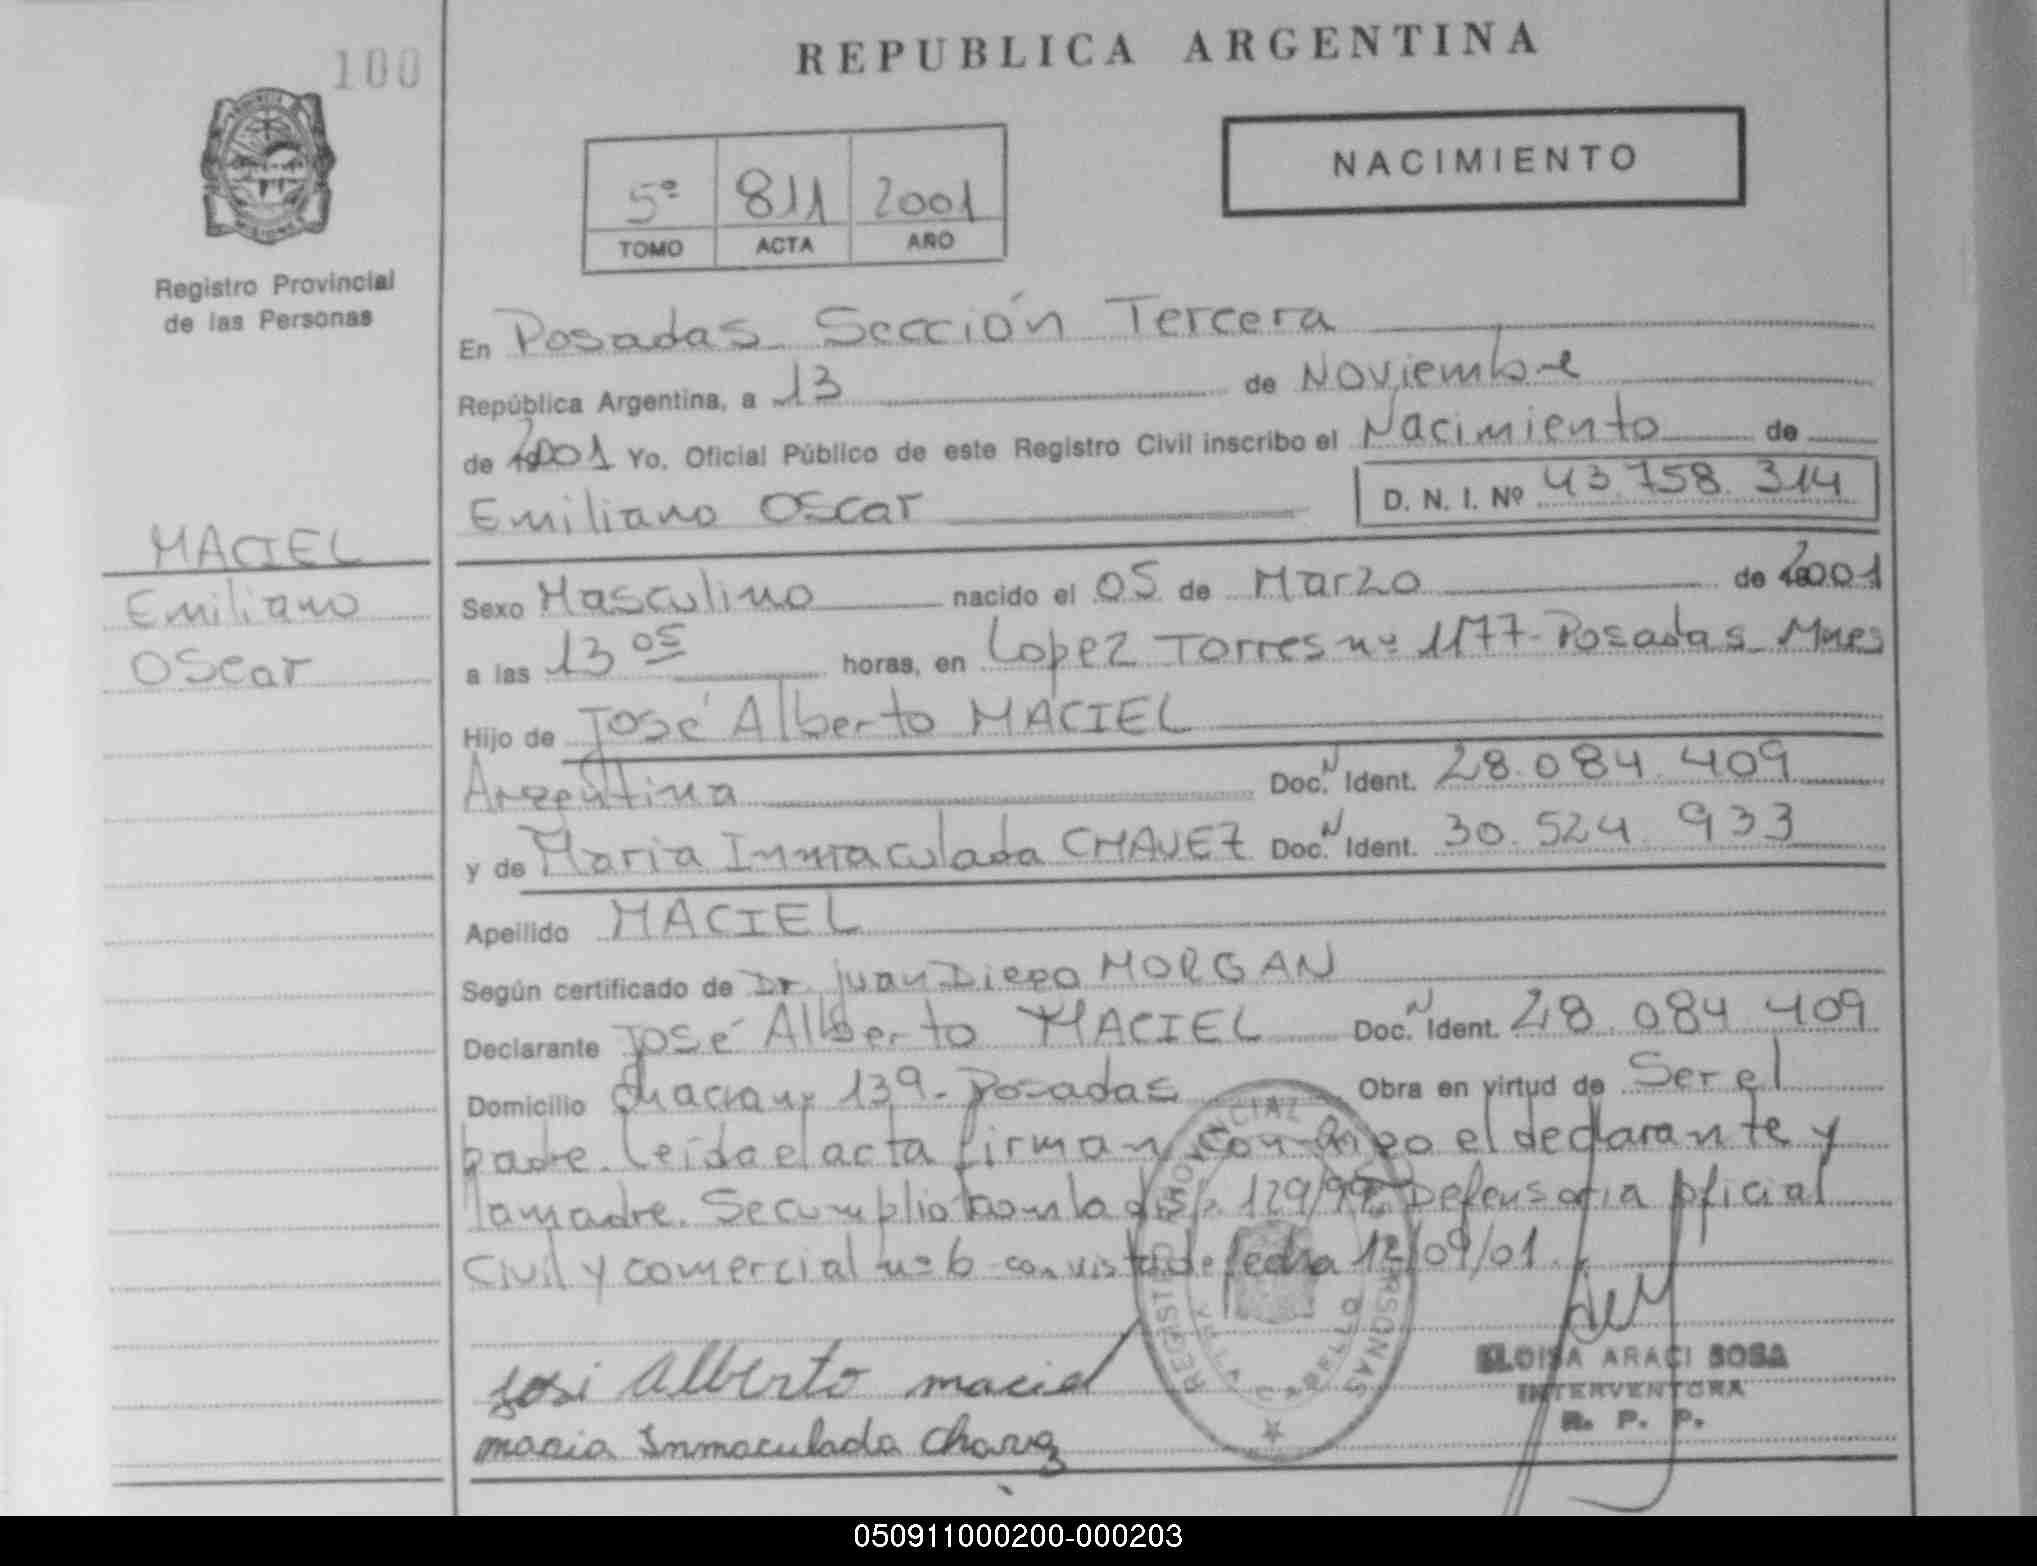 100
REPUBLICA ARGENTINA
NACIMIENTO
5º 811 2001
TOMO ACTA AÑO
Registro Provincial
de las Personas
En Posadas Sección Tercera
República Argentina, a 13 de Noviembre
de 2001 Yo, Oficial Público de este Registro Civil inscribo el Nacimiento de
Emiliano Oscar D. N. I. Nº 43.758.314
MACIEL
Emiliano
Oscar
Sexo Masculino nacido el 05 de Marzo de 2001
a las 13 05 horas, en Lopez Torres nº 1177-Posadas Mnes
Hijo de José Alberto MACIEL
Argentina Doc. N Ident. 28.084.409
y de Maria Inmaculada CHAVEZ Doc. N Ident. 30.524.933
Apellido MACIEL
Según certificado de Dr. Juan Diego MORGAN
Declarante José Alberto MACIEL Doc. N Ident. 28.084.409
Domicilio 139-Posadas Obra en virtud de Ser el
padre. Leída el acta firman conmigo el declarante y
la madre. Se cumplio con la disp. 129/99. Defensoria Oficial
Civil y comercial nº 6 con vista de fecha 12/09/01.
José Alberto maciel
maria Inmaculada Chavez
ELOISA ARACI SOSA
INTERVENTORA
R. P. P.
050911000200-000203